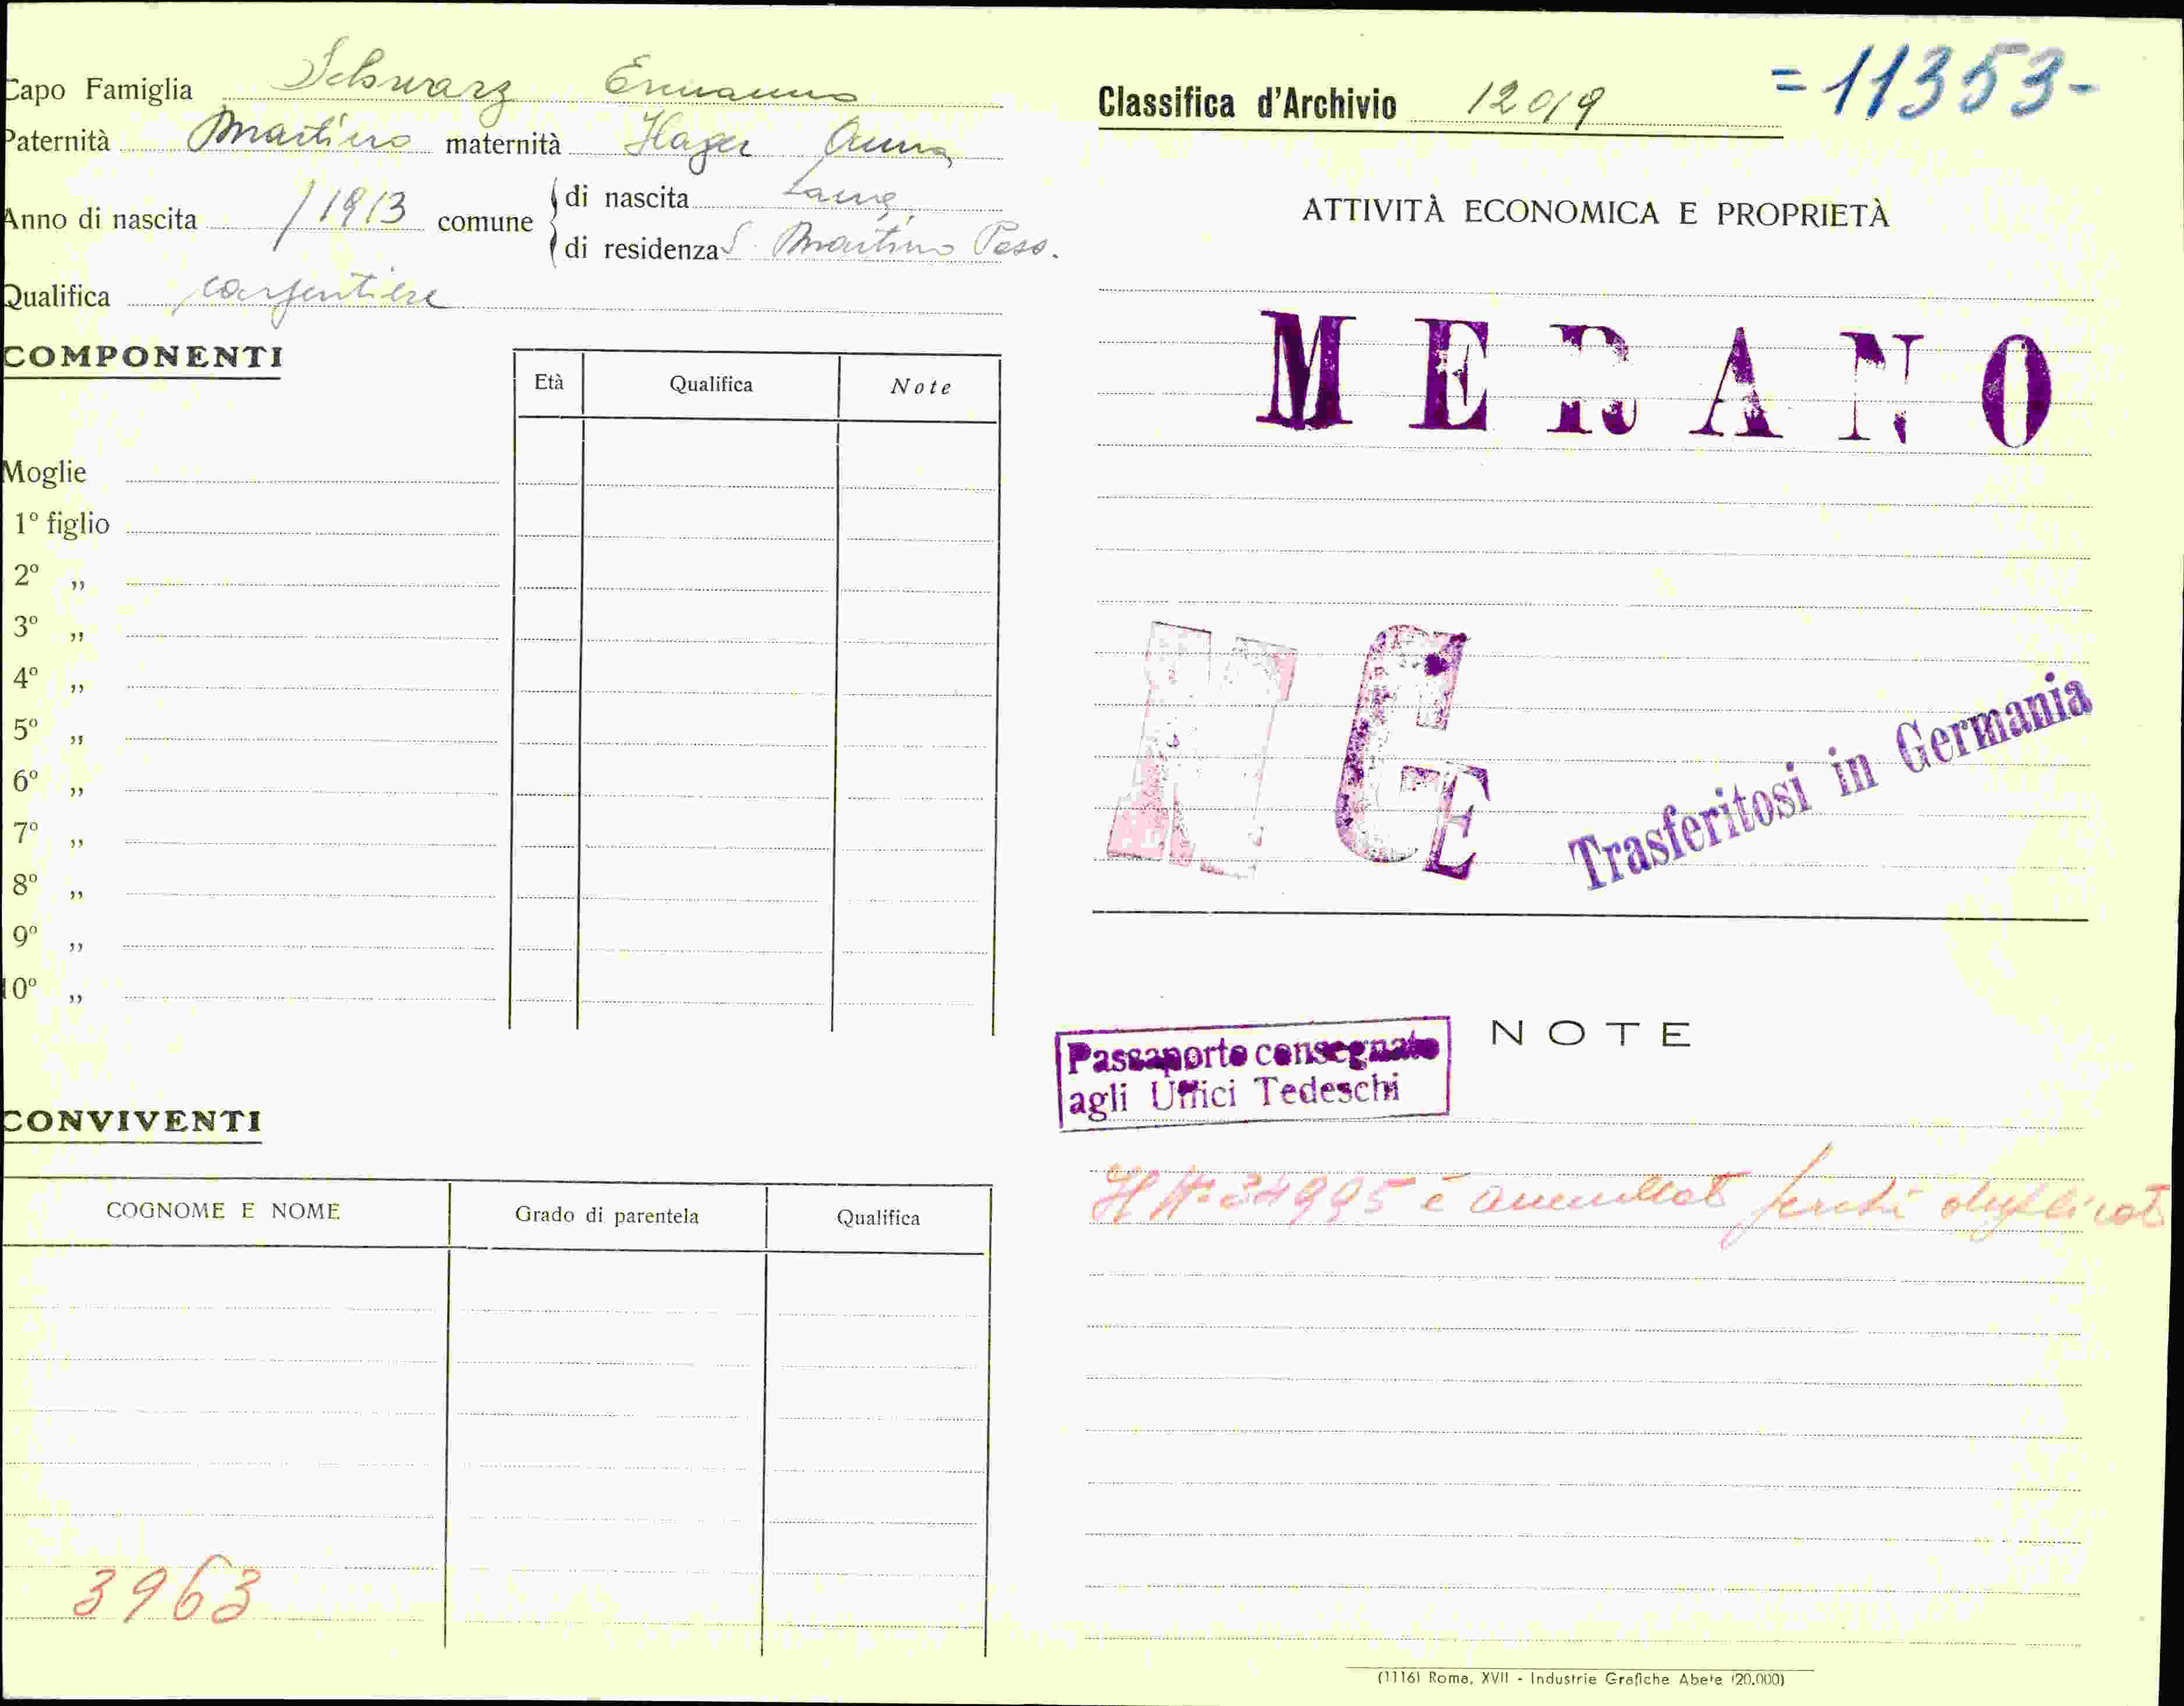 Capo Famiglia Schwarz Ermanno
Paternità Martino maternità Hager Anna
Anno di nascita /1913 comune
di nascita
di residenza S. Martino Pass.
Qualifica carpentiere
COMPONENTI
Età Qualifica Note
Moglie
1º figlio
2º „
3º „
4º „
5º „
6º „
7º „
8º „
9º „
10º „
CONVIVENTI
COGNOME E NOME Grado di parentela Qualifica
3963
Classifica d'Archivio 12019 =11353-
ATTIVITÀ ECONOMICA E PROPRIETÀ
MERANO
GE
Trasferitosi in Germania
NOTE
Passaporto consegnato
agli Uffici Tedeschi
Il Nº 34995 è annullato perchè duplicato
(1116) Roma, XVII - Industrie Grafiche Abete (20.000)